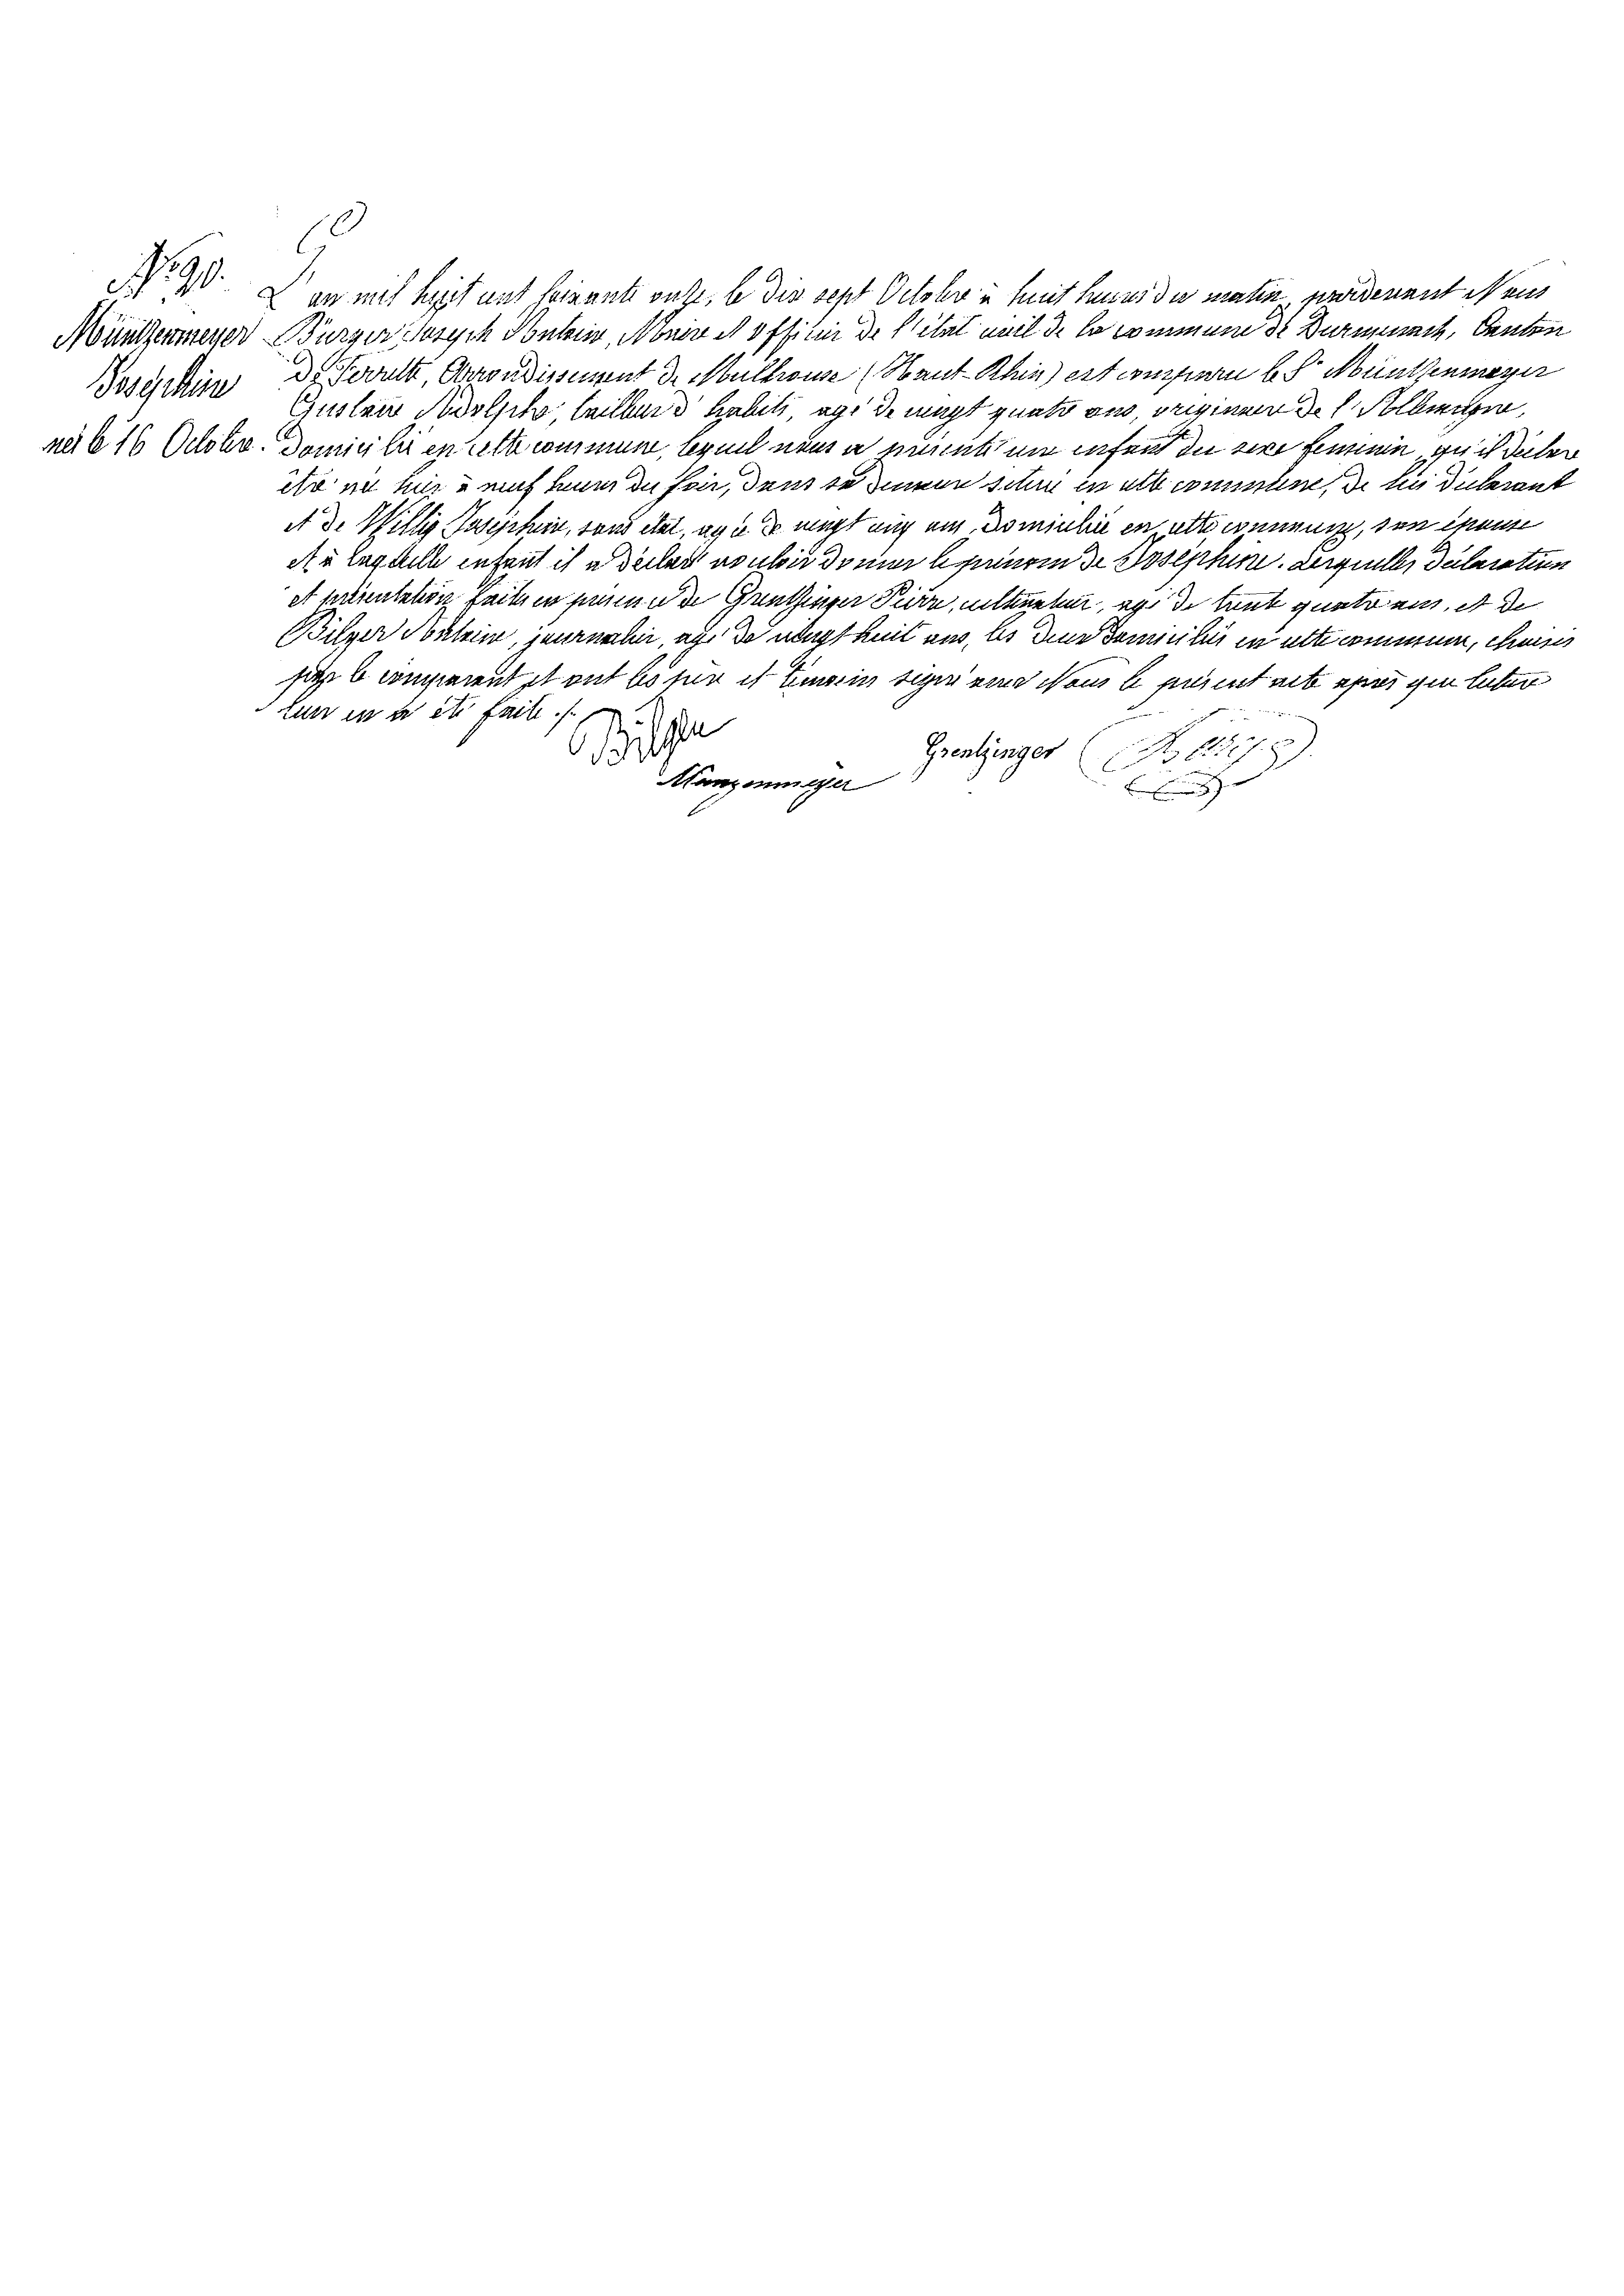 N° 90.
Müntzenmeyer
Joséphine
née le 16 Octobre.
L'an mil huit cent soixante onze, le dix sept Octobre à huit heures du matin, pardevant Nous
Bürger Joseph Antoine, Maire et Officier de l'état civil de la commune de Durmenach, Canton
de Ferrette, Arrondissement de Mulhouse (Haut-Rhin) est comparu le Sr Müntzenmeyer
Gustave Adolphe, tailleur d'habits, agé de vingt quatre ans, originaire de l'Allemagne,
domicilié en cette commune, lequel nous a présenté une enfant du sexe feminin, qu'il déclare
être né hier à neuf heures du soir, dans sa demeure située en cette commune, de lui déclarant
et de Willig Joséphine, sans état, agée de vingt cinq ans, domiciliée en cette commune, son épouse
et à laquelle enfant il a déclaré vouloir donner le prénom de Joséphine. Lesquelles déclaration
et présentation faites en présence de Grentzinger Pierre, cultivateur, agé de trente quatre ans, et de
Bilger Antoine, journalier, agé de vingt huit ans, les deux domiciliés en cette commune, choisis
par le comparant et ont les père et témoins signé avec Nous le présent acte après que lecture
leur en a été faite ./.
Bilger
Grentzinger
Munzenmeyer